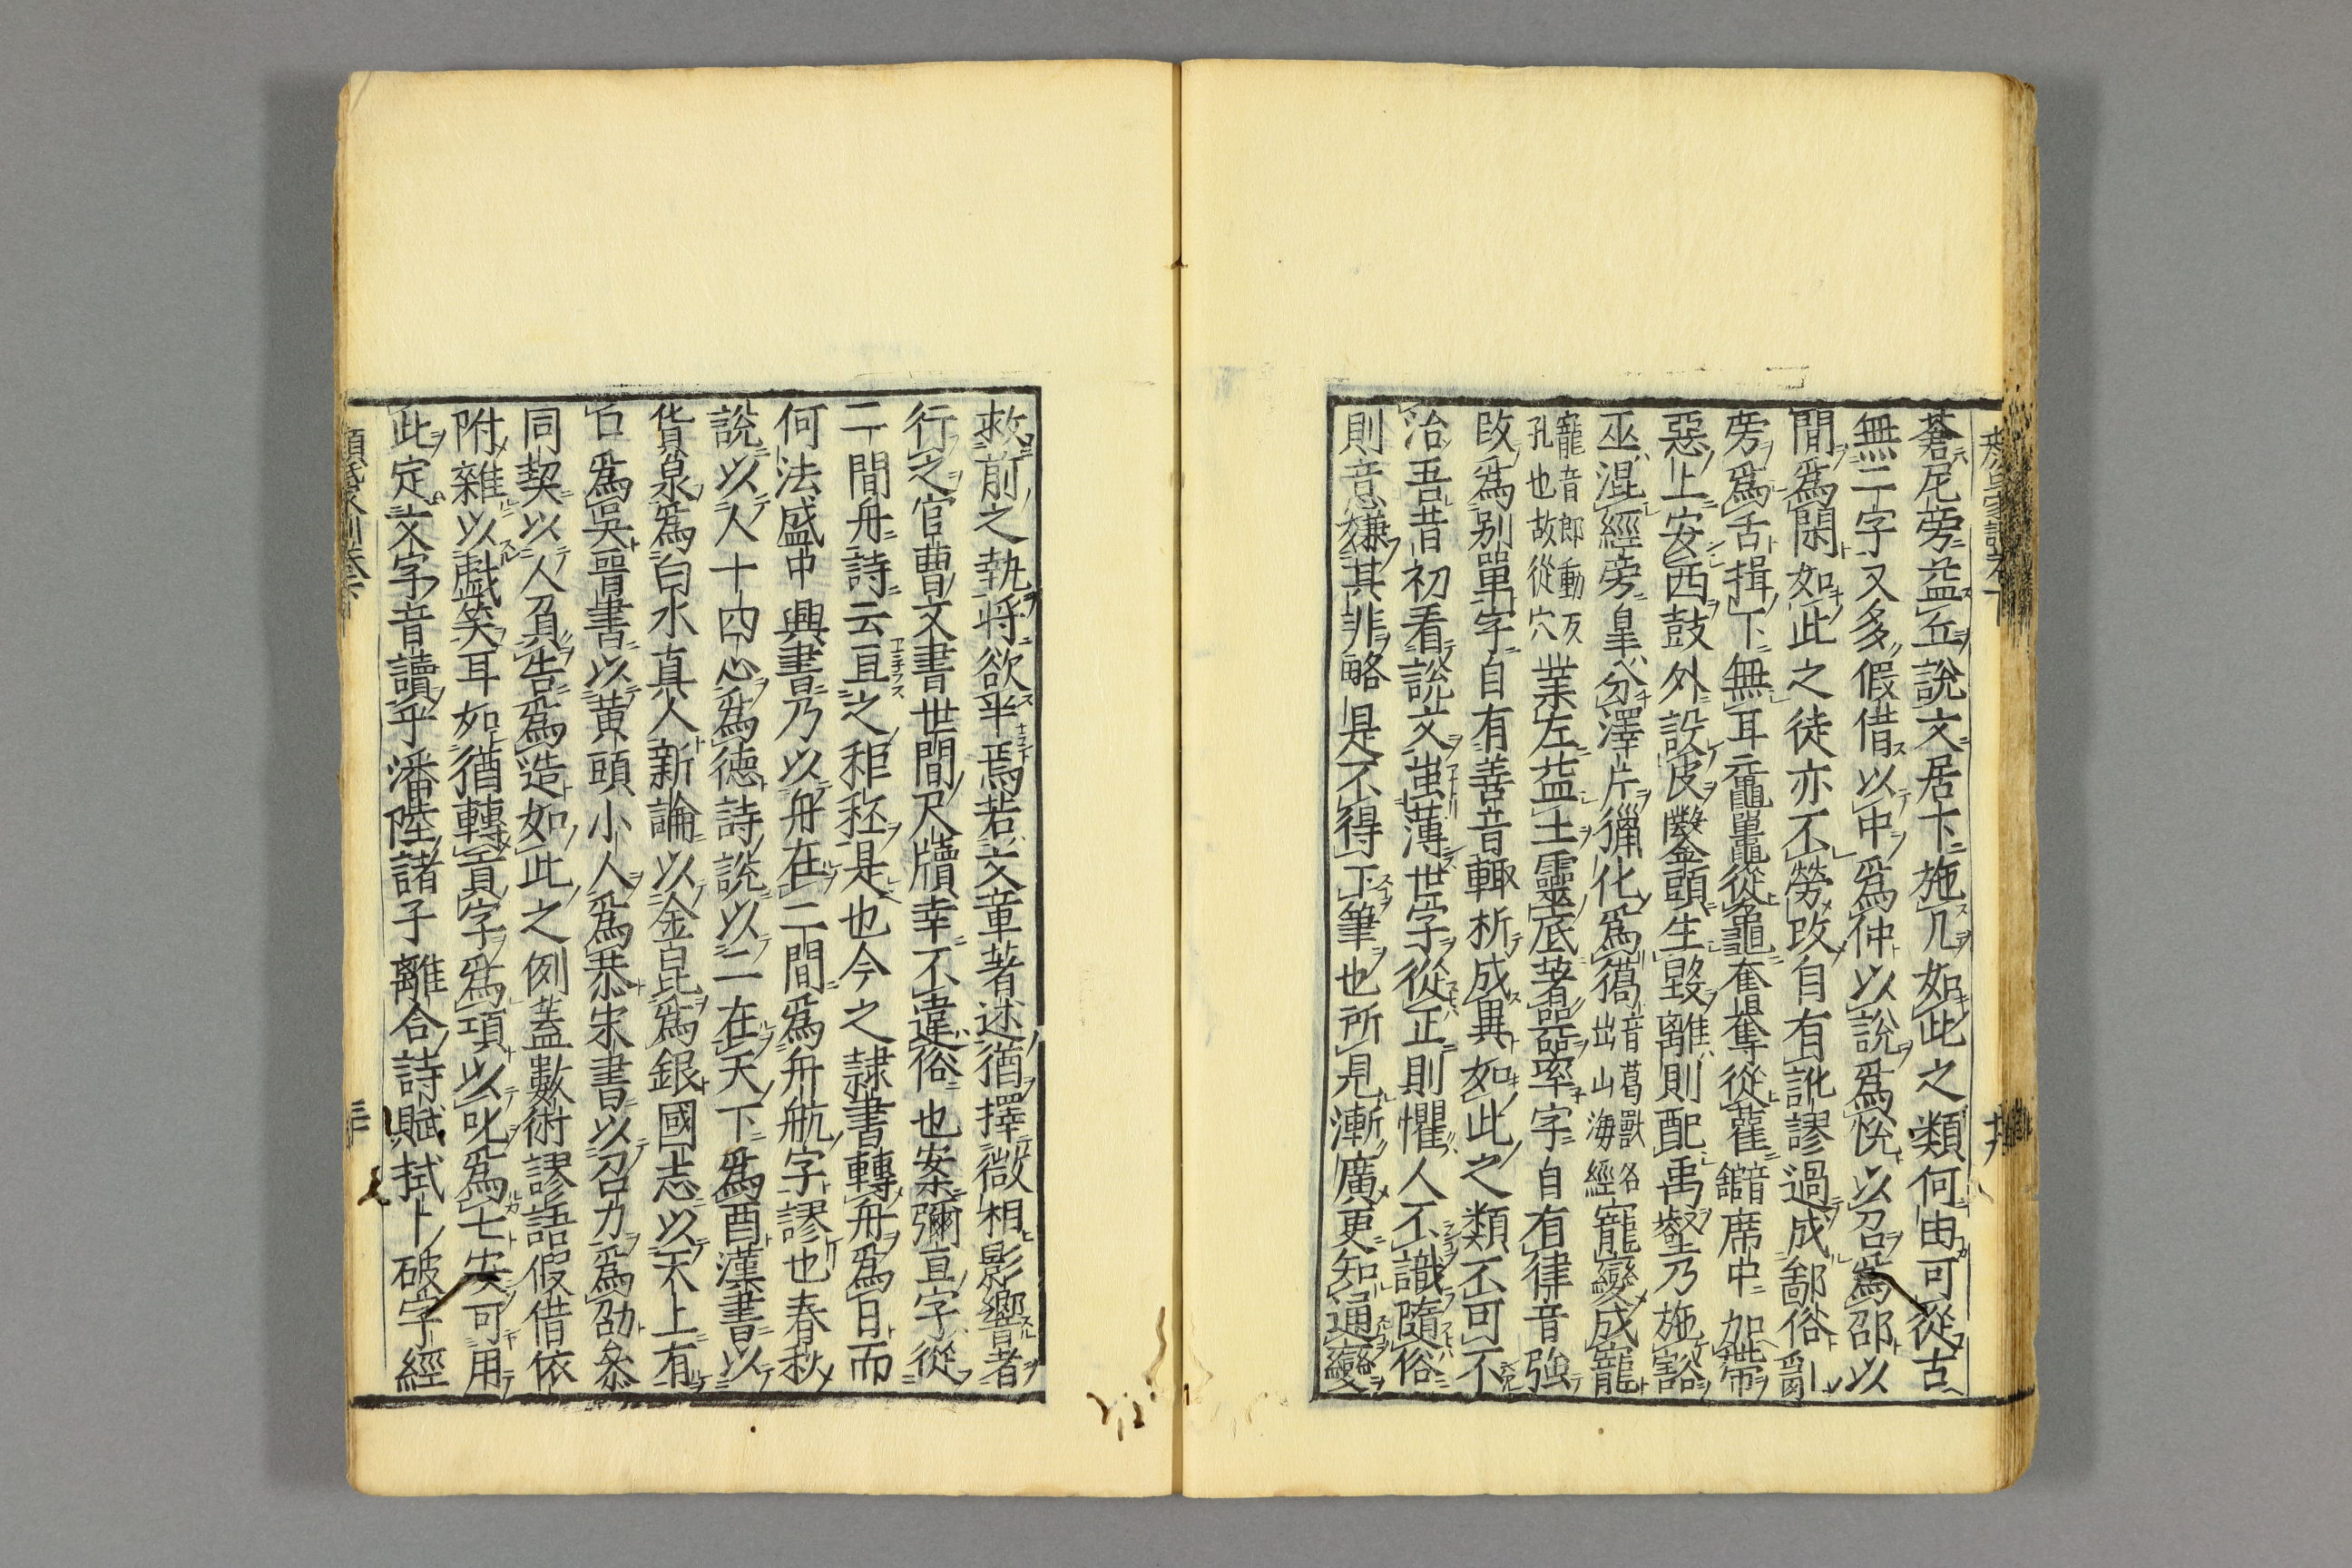 蒼尼旁益丘說文居下施几如此之類何由可從古
無二字又多假借以中爲仲以說爲悅以召爲邵以
閒爲閑如此之徒亦不勞改自有訛謬過成鄙俗亂
旁爲舌揖下無耳黿鼉從龜奮奪從雚音館席中加帶
惡上安西鼓外設皮鑿頭生毀離則配禹壑乃施豁
巫混經旁皐分澤片獵化爲獦音葛獸名出山海經寵變成寵
寵音郎動反孔也故從穴業左益土靈底著器率字自有律音強
改爲別單字自有善音輙析成異如此之類不可不
治吾昔初看說文蚩薄世字從正則懼人不識隨俗
則意嫌其非略是不得下筆也所見漸廣更知通變
救前之執將欲半焉若文章著述猶擇微相影響者
行之官曹文書世間尺牘幸不違俗也案彌亘字從
二間舟詩云亘之秬秠是也今之隷書轉舟爲日而
何法盛中興書乃以舟在二間爲舟航字謬也春秋
說以人十四心爲德詩說以二在天下爲酉漢書以
貨泉爲白水真人新論以金昆爲銀國志以天上有
口爲吳晉書以黄頭小人爲恭宋書以召力爲劭叅
同契以人負告爲造如此之例蓋數術謬語假借依
附雜以戯笑耳如猶轉貢字爲項以叱爲七安可用
此定文字音讀乎潘陸諸子離合詩賦拭卜破字經